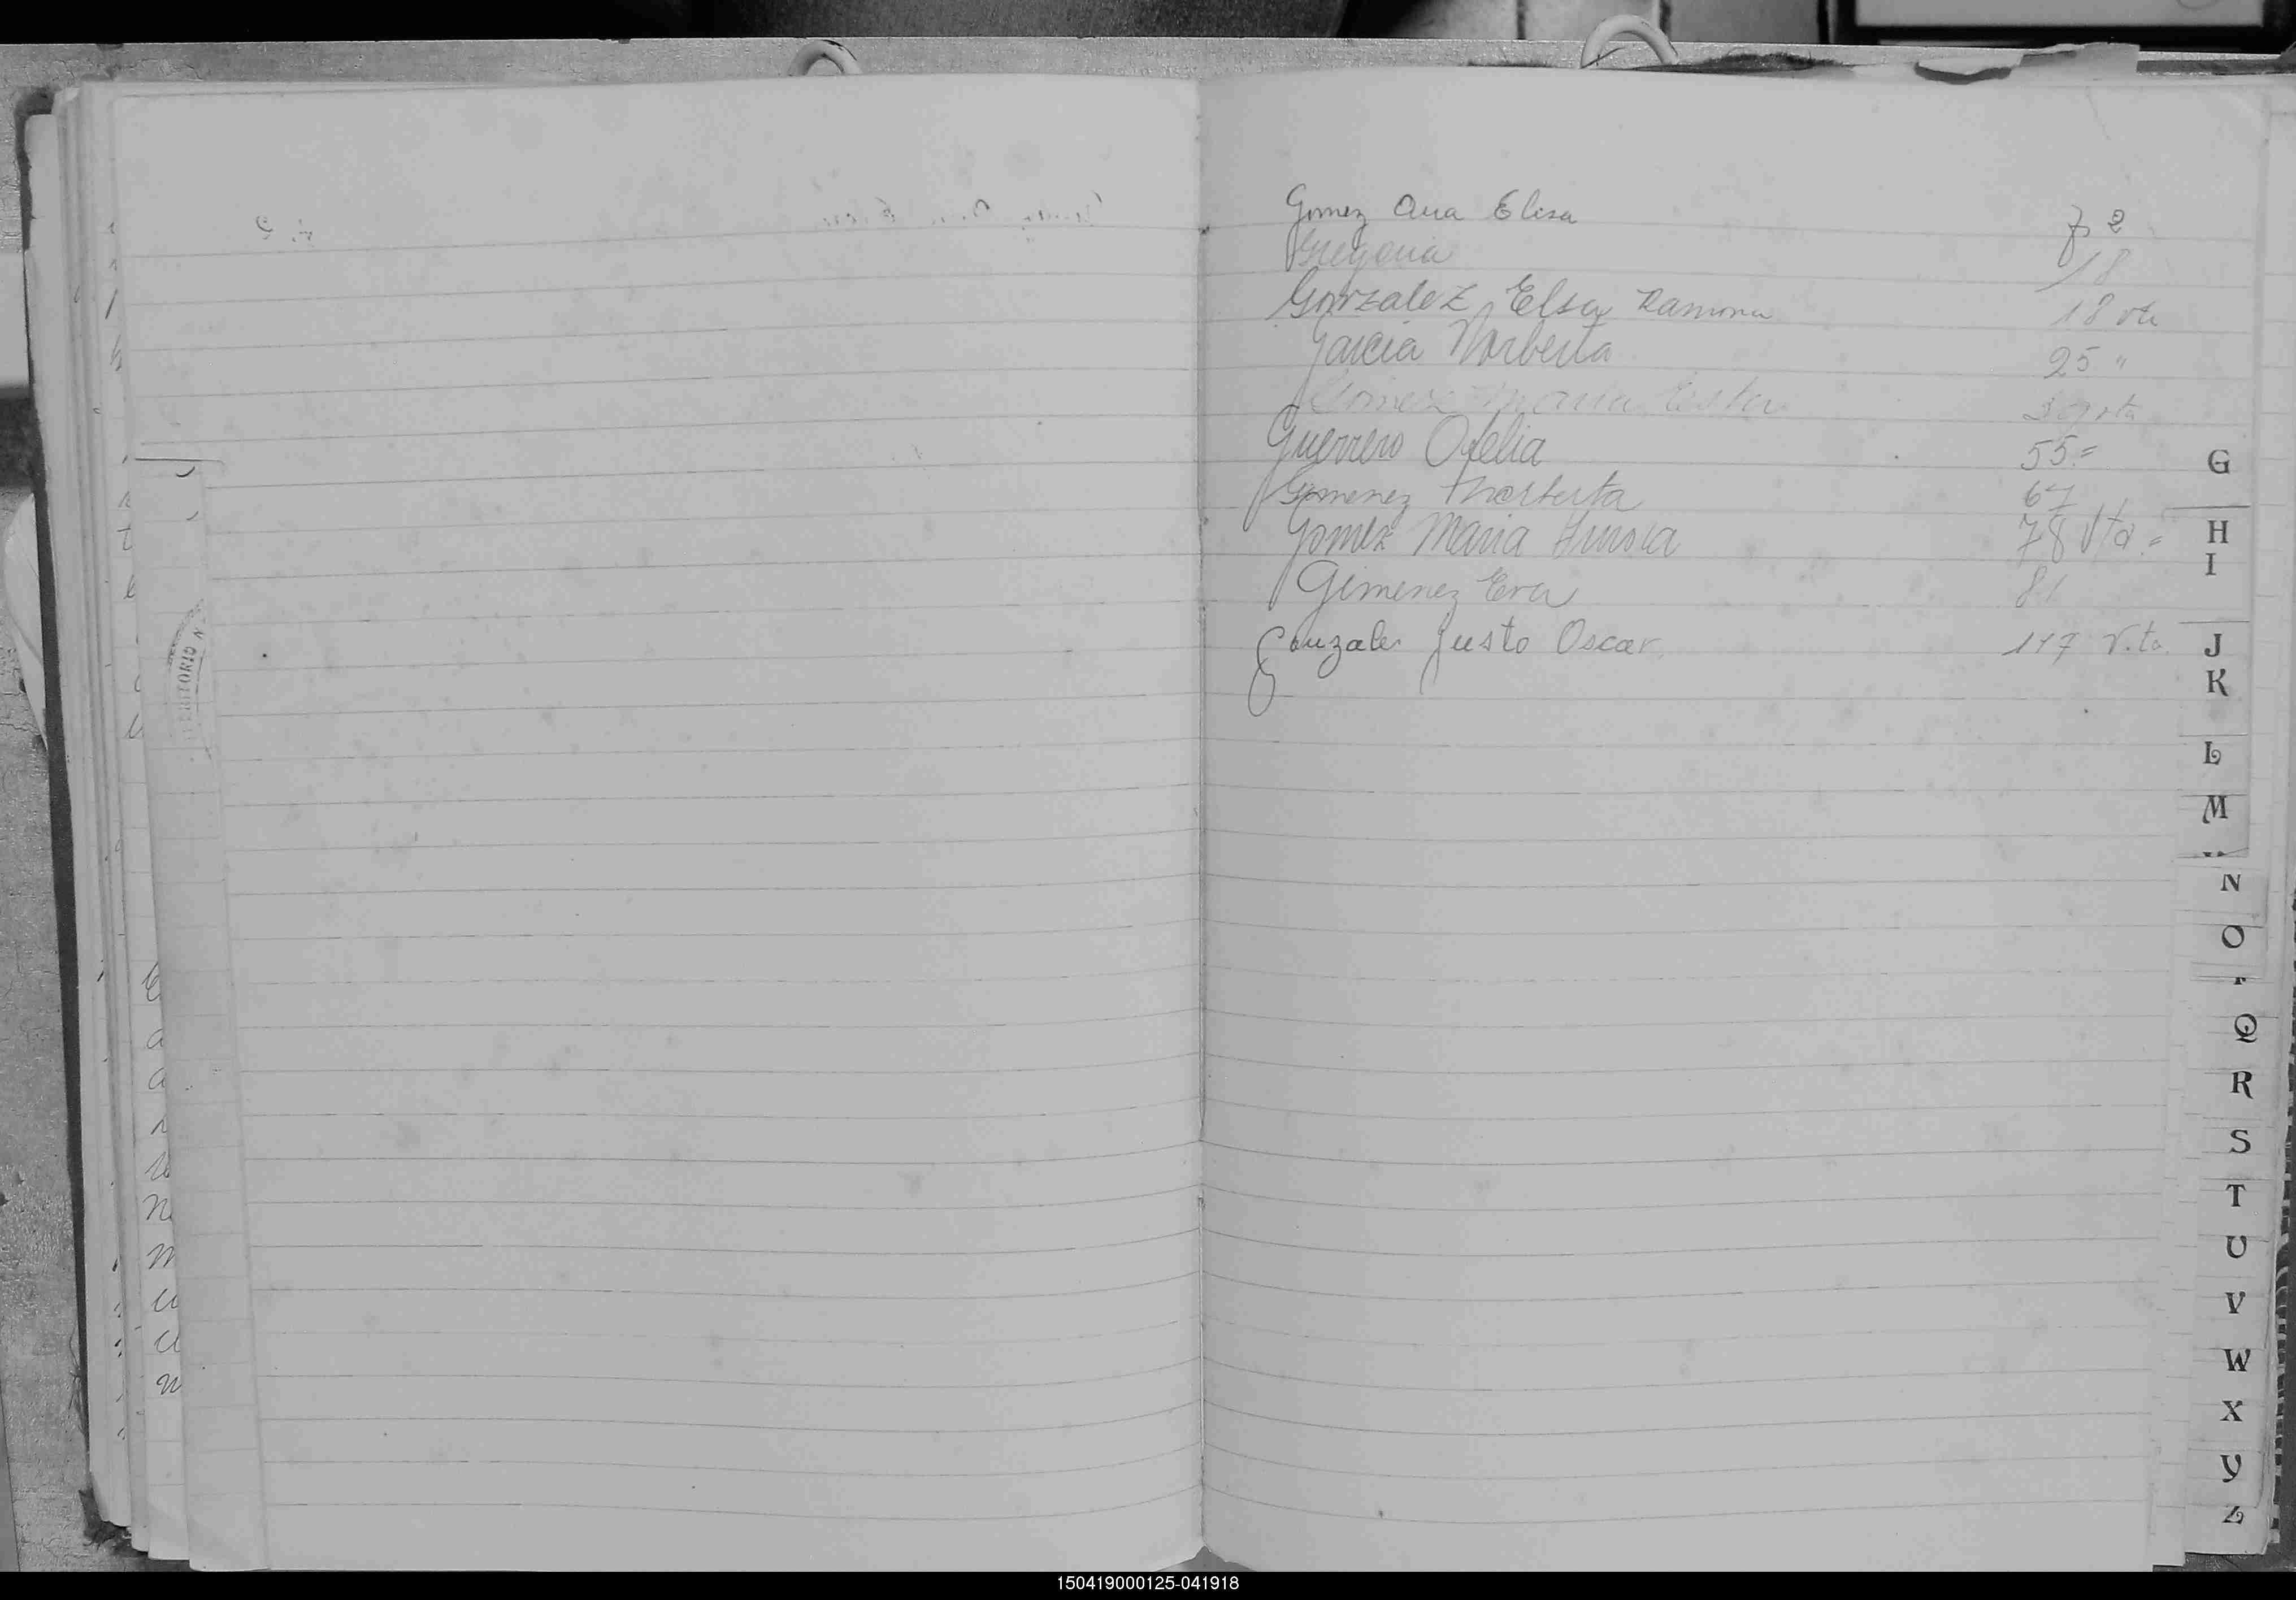 Gomez Ana Elisa fs 2
Gregoria 18
Gonzalez Elsa Ramona 18 vta
Garcia Norberta 25 "
Gomez Maria Ester 39 vta
Guerrero Ofelia 55.=
Gimenez Norberta 67
Gomez Maria 78 Vta.=
Gimenez Eva 81
Gonzalez Justo Oscar. 117 V.ta.
G
H
I
J
K
L
M
N
O
Q
R
S
T
U
V
W
X
Y
Z
150419000125-041918